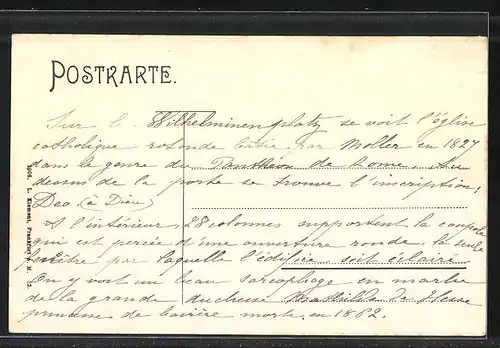 POSTKARTE.
Sur le Wilhelminenplatz se voit l'église
catholique ronde bâtie par Moller en 1827
dans le genre du Panthéon de Rome. Au
dessus de la porte se trouve l'inscription,
Deo (à Dieu)
A l'intérieur, 28 colonnes supportent la coupole
qui est percée d'une ouverture ronde, la seule
fenêtre par laquelle l'édifice soit éclairé
On y voit un beau sarcophage en marbre
de la grande duchesse Mathilde de Hesse
princesse de Bavière morte en 1862.